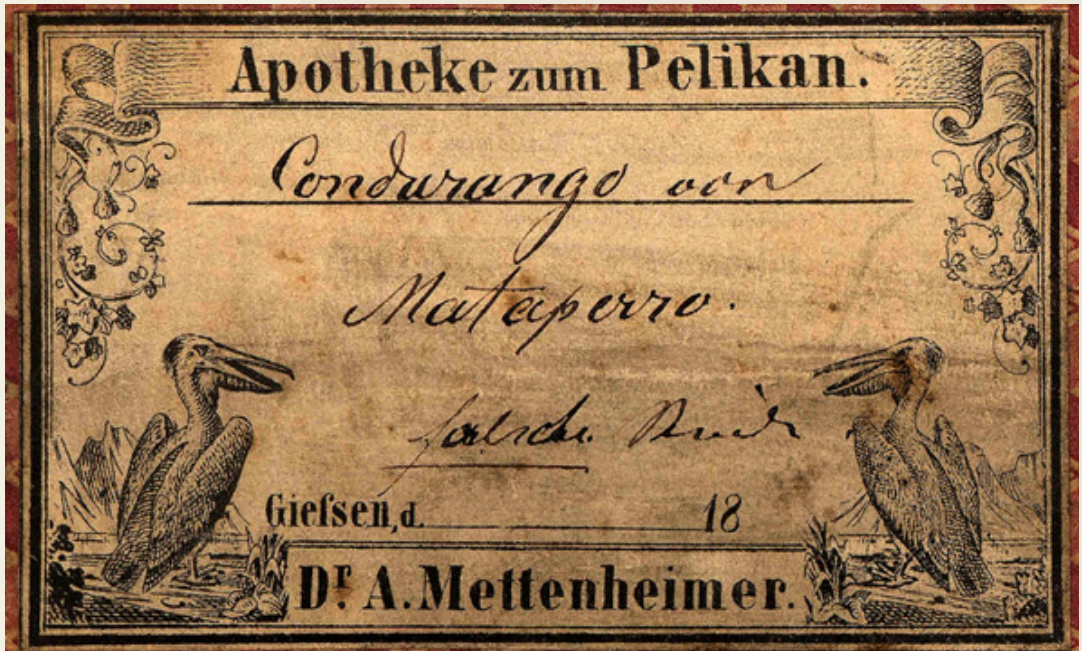 Apotheke zum Pelikan.
Condurango von
Mataperro.
falsche Rinde
Gieſsen, d. 18
Dr. A. Mettenheimer.